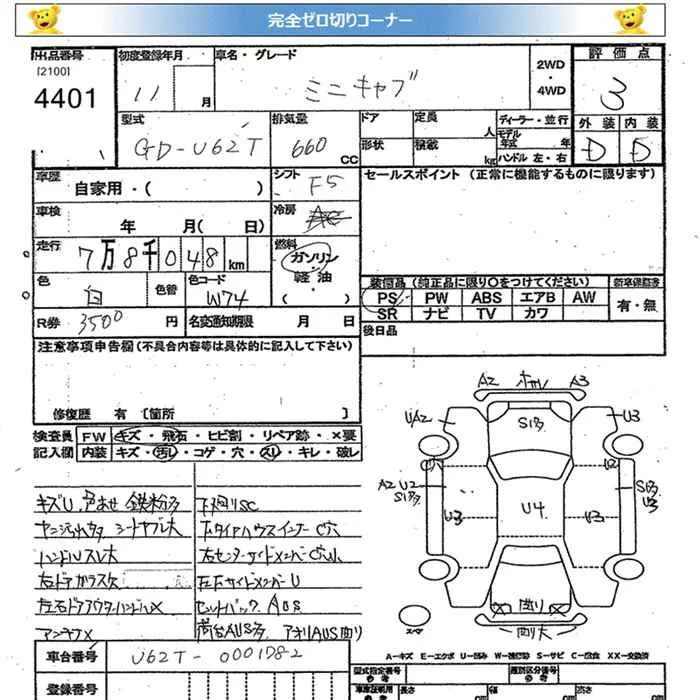 完全ゼロ切りコーナー
出品番号
[2100]
4401
初度登録年月
11 月
車名・グレード
ミニキャブ
2WD
・
4WD
評価点
3
型式
GD-U62T
排気量
660 CC
ドア
定員
人
形状
積載
kg
ディーラー・並行
モデル年式 年
ハンドル 左・右
外装 内装
D D
車歴
自家用・( )
シフト
F5
セールスポイント (正常に機能するものに限ります)
車検
年 月( 日)
冷房
AC
走行
7万8千048km
燃料
ガソリン
・
軽油
色
白
色替
色コード
W74
装備品 (純正品に限り○をつけてください)
新車保証書
PS PW ABS エアB AW
SR ナビ TV カワ
有・無
R券
3500 円
名変通知期限 月 日
後日品
注意事項申告欄(不具合内容等は具体的に記入して下さい)
修復歴 有 〔箇所 〕
検査員 FW キズ・飛石・ヒビ割・リペア跡・×要
記入欄 内装 キズ・汚レ・コゲ・穴・スレ・キレ・破レ
キズU、色あせ 鉄粉多
下廻りSC
ヤニ汚れ多 シートヤブレ大
右タイヤハウスインナーC穴
ハンドルスレ大
右センターサイドメンバーC穴小
右ドアガラスキズ
左右サイドメンバーU
左右ドアアウターハンドル×
セットバック AUS
アンテナ×
荷台AUS多 アオリAUS曲り
A2
A3
UA2
U3
S1多
A2 U2
S1多
U3
U4
U3
曲り
曲り大
スペア
車台番号
U62T-0001782
A-キズ E-エクボ U-凹み W-補修跡 S-サビ C-腐食 XX-交換済
登録番号
型式指定番号
類別区分番号
車庫証明用
長さ cm
幅 cm
高さ cm